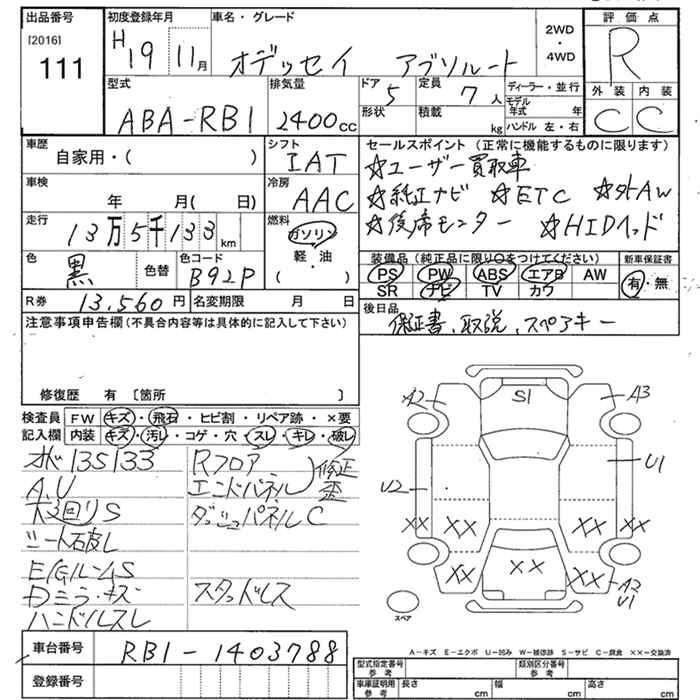 出品番号 初度登録年月 車名・グレード 2WD・4WD 評価点
[2016] 111 H19 11月 オデッセイ アブソルート R
型式 排気量 ドア 5 定員 7人 ディーラー・並行 外装 内装
ABA-RB1 2400cc 形状 積載 kg モデル年式 年 ハンドル 左・右 C C
車歴 自家用・( ) シフト IAT セールスポイント (正常に機能するものに限ります)
☆ユーザー買取車
車検 年 月( 日) 冷房 AAC ☆純正ナビ ☆ETC ☆外AW
走行 13万5千133km 燃料 ガソリン 軽・油 ( ・ ) ☆後席モニター ☆HIDヘッド
色 黒 色替 色コード B92P 装備品 (純正品に限り○をつけてください) 新車保証書
PS PW ABS エアB AW 有・無
SR ナビ TV カワ
R券 13,560円 名変期限 月 日 後日品
保証書、取説、スペアキー
注意事項申告欄 (不具合内容等は具体的に記入して下さい)
修復歴 有 〔箇所 〕
検査員 FW キズ・飛石・ヒビ割・リペア跡・×要
記入欄 内装 キズ・汚レ・コゲ・穴・スレ・キレ・破レ
135133 Rフロア
A,U エンドパネル 修正 歪
回りS ダッシュパネルC
シート
E/GルームS
スタッドレス
ハンドルスレ
A2 S1 A3
U2 U1
×× ×× ×× ××
×× ×× ×× A2
U1
スペア
A-キズ E-エクボ U-凹み W-補修跡 S-サビ C-腐食 ××-交換済
車台番号 RB1-1403788
登録番号
型式指定番号 参考 類別区分番号 参考
車庫証明用 参考 長さ cm 幅 cm 高さ cm